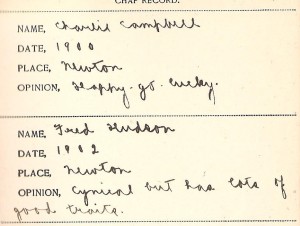 CHAP RECORD.
NAME, Charlie Campbell
DATE, 1900
PLACE, Newton
OPINION, Happy-go-lucky.
NAME, Fred Hudson
DATE, 1902
PLACE, Newton
OPINION, Cynical but has lots of
good traits.